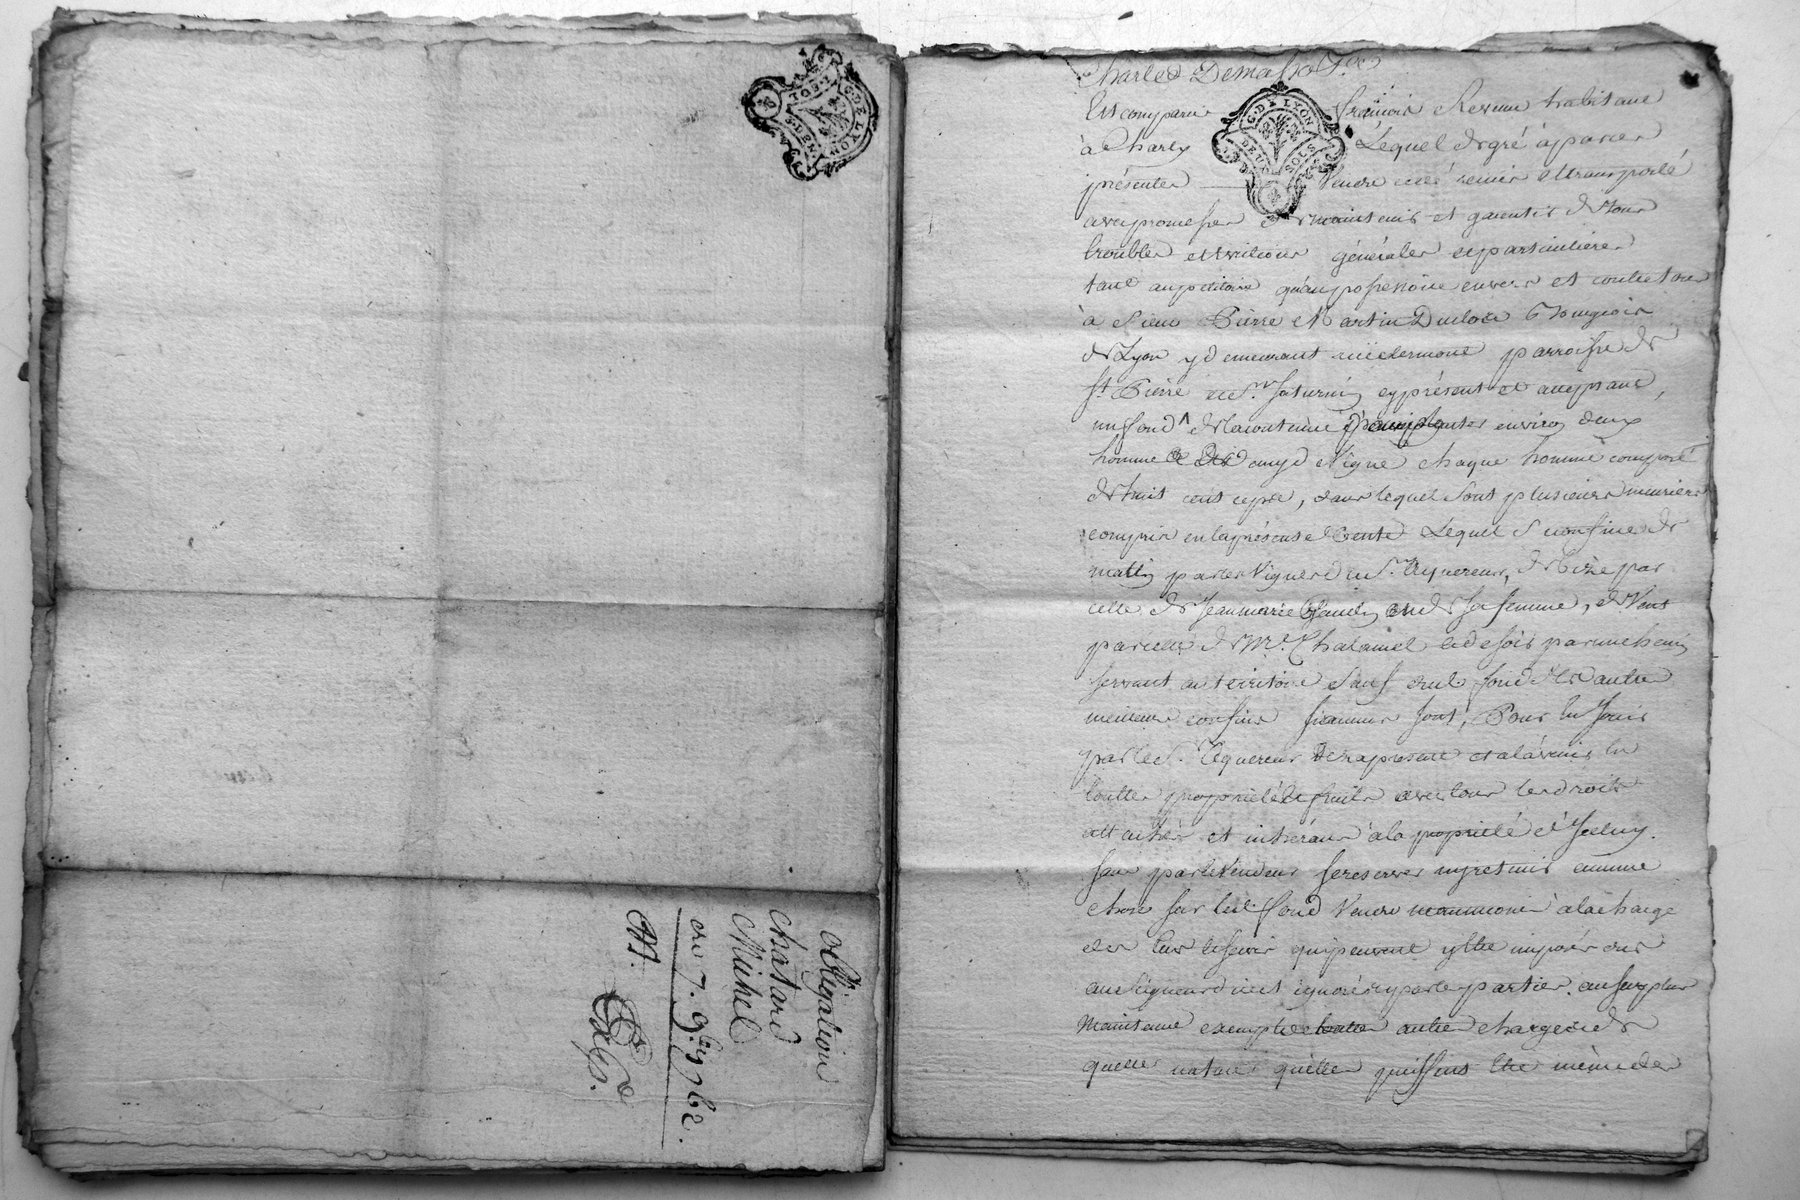 G. DE LYON
obligation
chatard
Michel
du 7. 9bre 1762.
Charles Demaho
Est comparu françois habitant
à Charly Lequel de gré à parier
présenter vendre cede remis et transporté
avec promesse de maintenir et garentir de tour
troubler et evictions générales et particulières
tant au petitoire qu'au possessoire envers et contre tous
à Sieur Pierre Martin Duclos Bourgeois
de Lyon y demeurant rue clermont parroisse de
St. Pierre et St. Saturnin cy présent et acceptant,
un fond de la contenue environ deux
homme de vigne chaque homme composé
de huit cent ceps, dans lequel sont plusieurs muriers
compris en la présente vente Lequel se confine de
matin par les vignes du Sr. acquereur, de bize par
celle de Jeanmarie de sa femme, de vent
par celle de Mr. Chalamel et de soir par un chemin
servant au territoire sauf dud. fond de autre
meilleur confins si aucuns sont, Pour en jouir
par led. Sr. acquereur dez a present et a l'avenir en
toutte propriété et fruits avec tous les droits
attachés et inherans à la propriété d'Iceluy.
sans par le vendeur se reserver ny retenir aucune
chose sur led. fond vendu à la charge
des et servis qui peuvent y être imposés dus
aux seigneurs direct ignorés par les parties. au surplus
maintenu exempt de toutes autres charges de
quelle nature quelles puissent être même des
G. DE LYON
DEUX SOLS